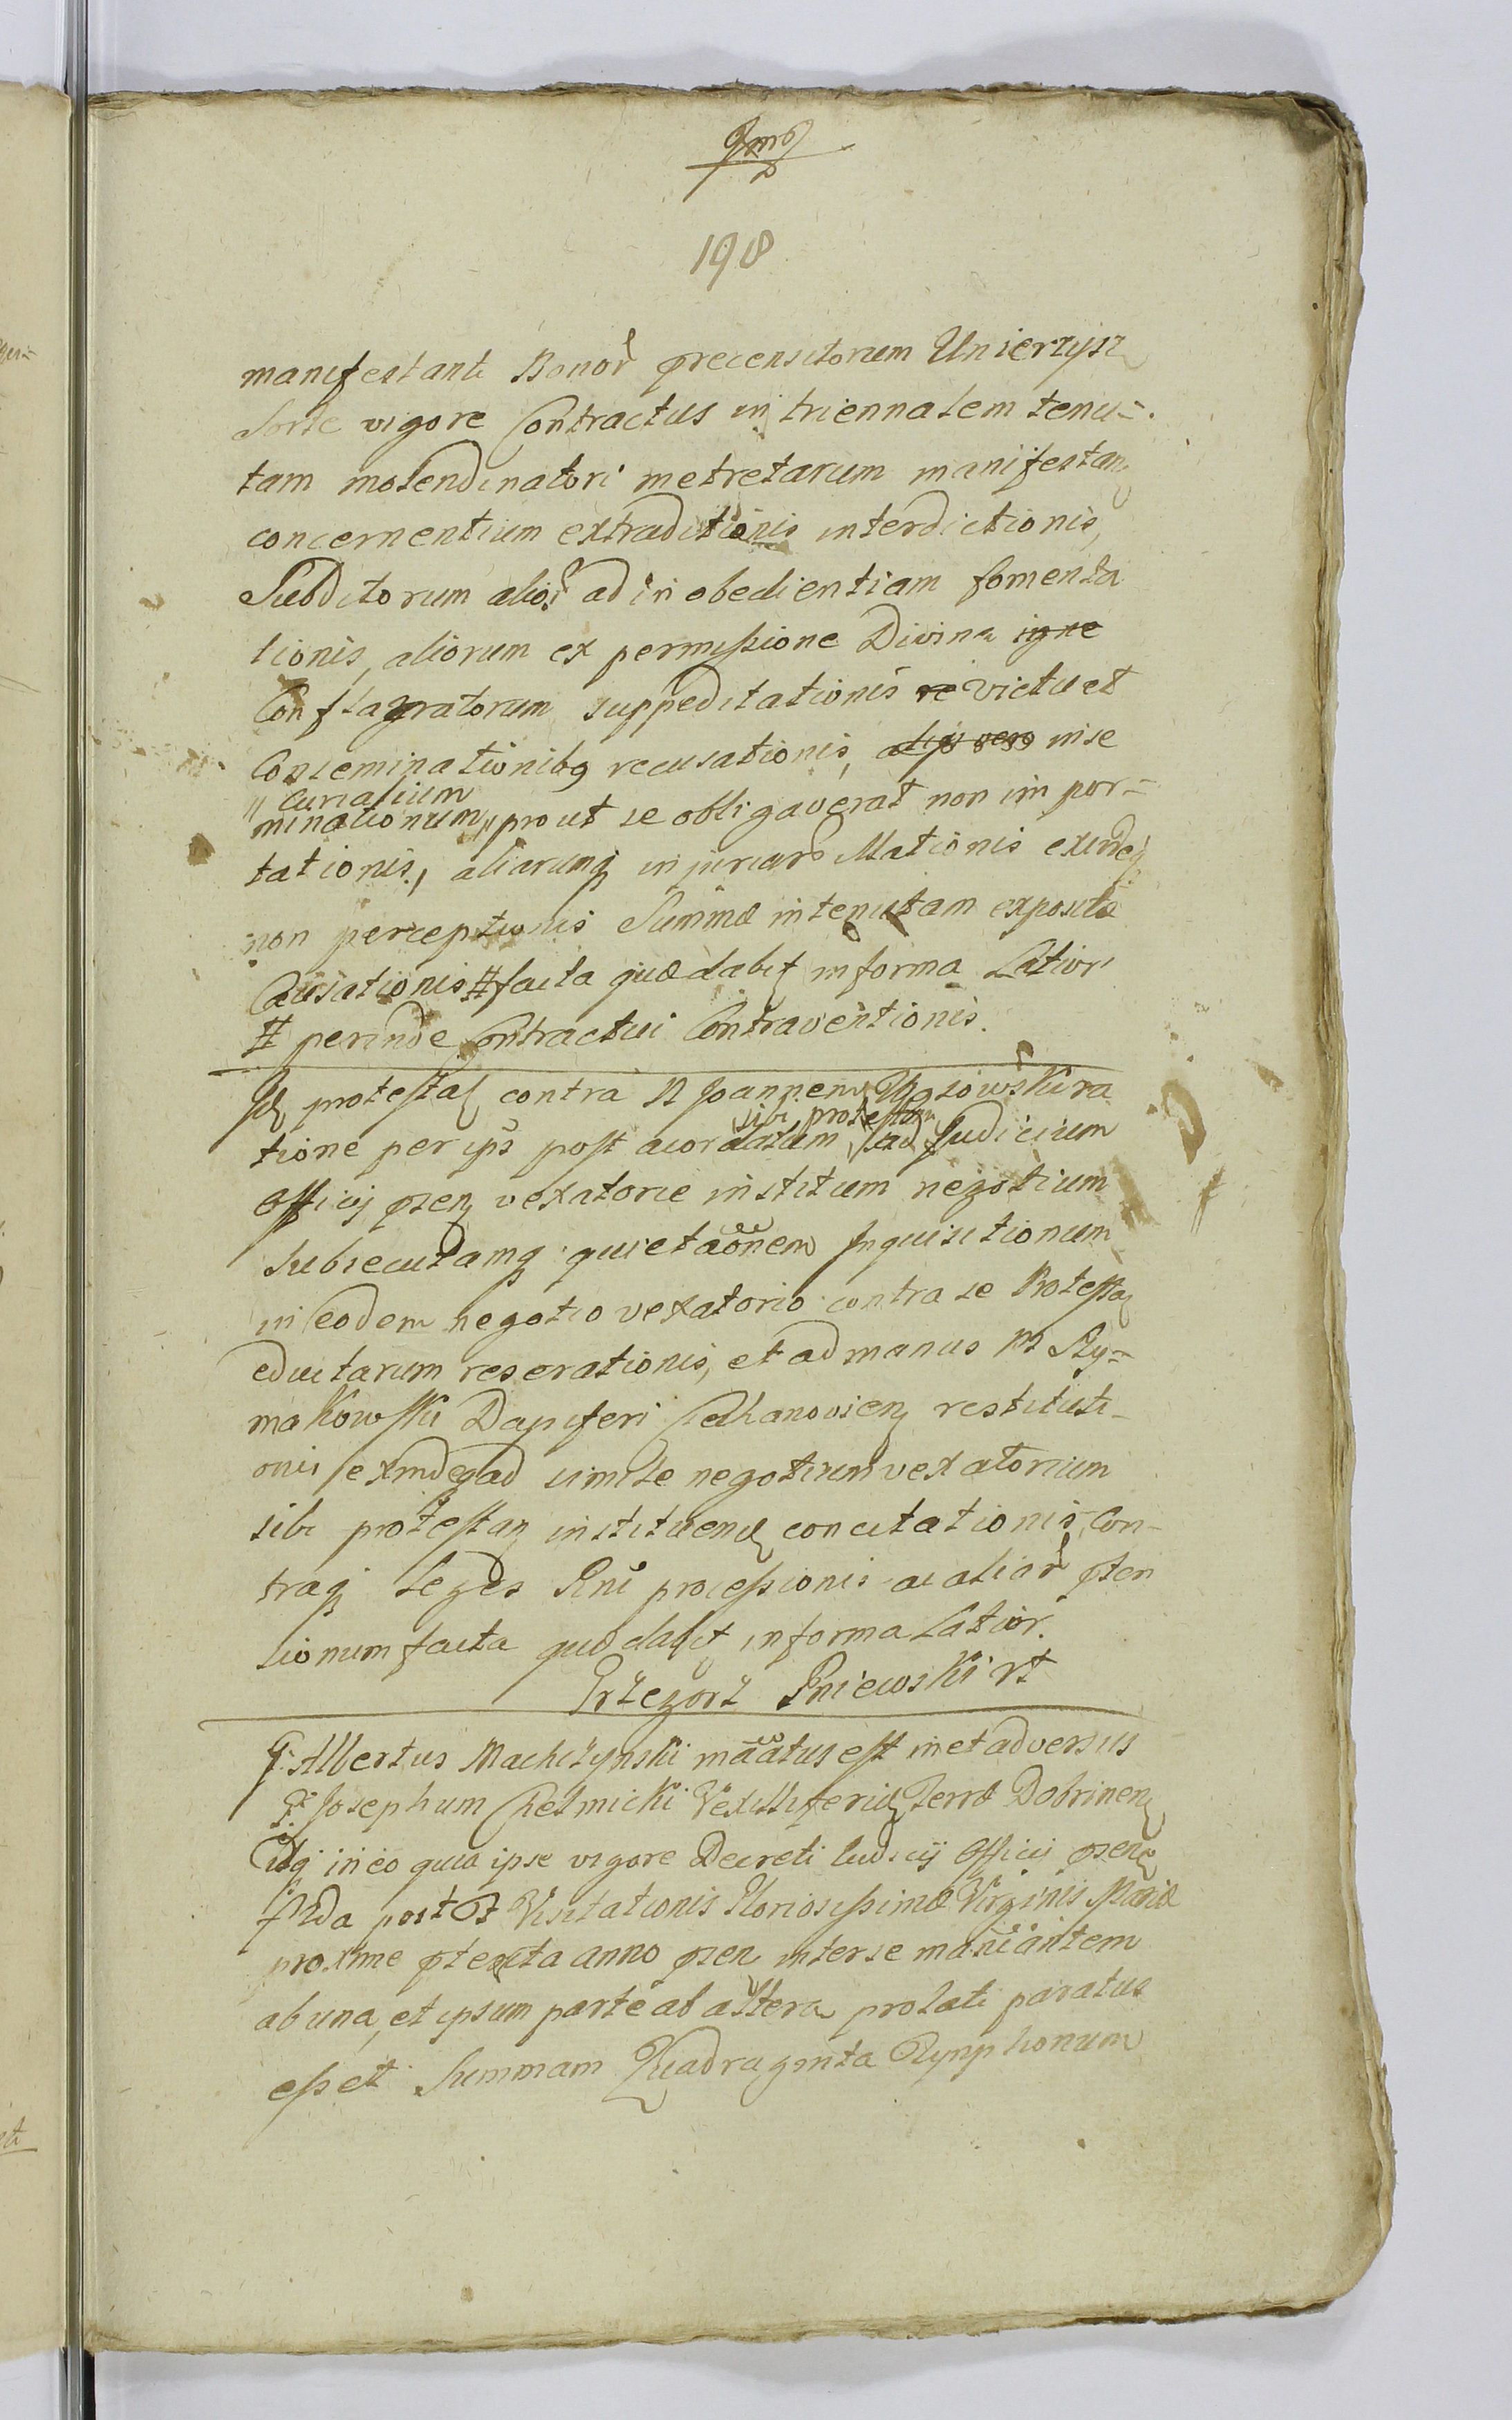 198
manifestanti Bonor precensitorum Unierzysz
Sorte vigore Contractus in triennalem tenu=
tam molendinatori metretarum manifestan
concernentium extraditionis interdictionis,
Subditorum alior ad in obedientiam fomenta
tionis, aliorum ex permissione Divina igne
Conflagratorum suppeditationis re victu et
Conseminationibq recusationis, alijs vero inse
"Curialium
minationum,, prout se obligaverat non impor=
tationis, aliarumq injuriarum Illationis exindeq
non perceptionis Summæ in tenutam expositæ
Causationis # facta quæ dabit in forma Latiori
# perinde Contractui Contraventionis.
Id protestat contra N Joannem Ussowski ra
sibi protestan
tione per ips post acordatam ad Judicium
Officij psen vexatorie institum negotium
Subsecutamq quietaonem Inquisitionum
in eodem negotio vexatorio contra se Protestan
eductarum reserationis, et ad manus M Ry=
makowski Dapiferi Ciechanovien restituti-
onis exindeq ad simile negotium vexatorium
sibi protestan instituend concitationis, Con-
traq Leges Rni processionis ac alior pten
sionum facta quæ dabit in forma Latior.
Grzegorz Pniewski rt
G. Albertus Machczynski maatus est in et adversus
G. Josephum Chełmicki Vexilliferid Terræ Dobrinen
Idq in eo quia ipse vigore Decreti Iudicij Officij psen
fRda post F Visitationis Gloriosissimæ Virginis Mariæ
proxime pterita anno psen inter se maniantem
ab una, et ipsum parte ab altera prolati paratus
esset Summam Quadraginta Tynphonum